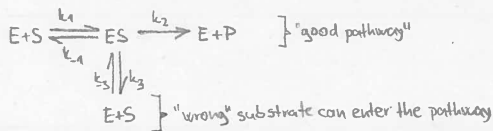 E+S k₁ k₋₁ ES k₂ E+P } "good pathway"
k₋₃ k₃
E+S } "wrong" substrate can enter the pathway